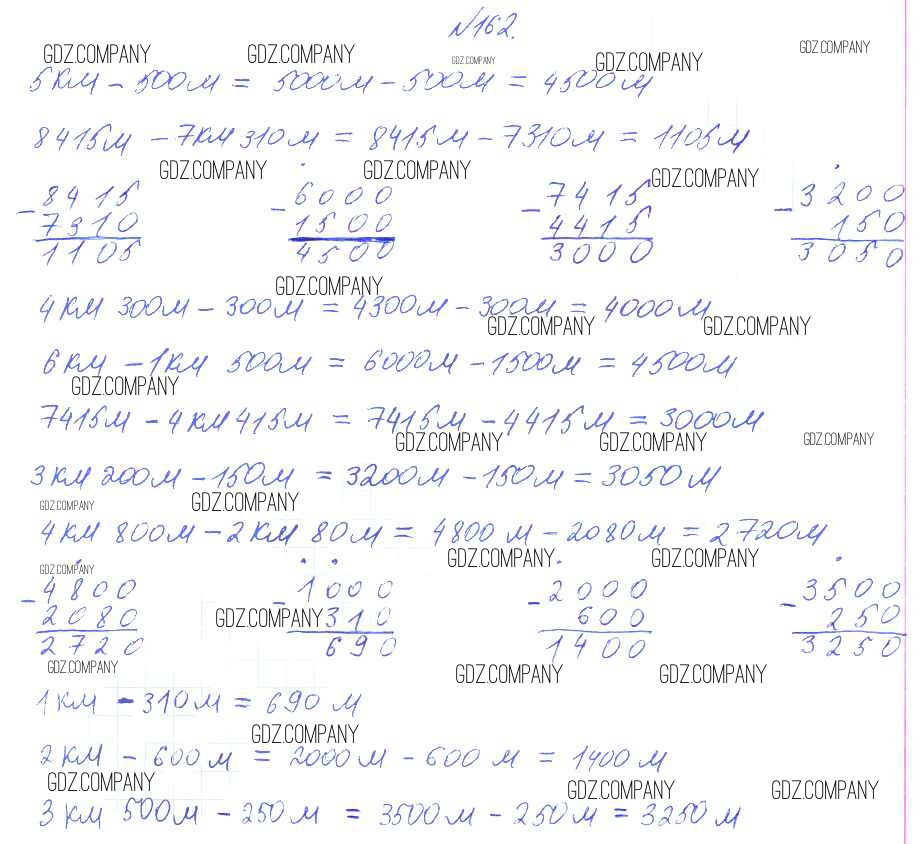 №162.
GDZ.COMPANY GDZ.COMPANY GDZ.COMPANY GDZ.COMPANY GDZ.COMPANY
5 км - 500 м = 5000 м - 500 м = 4500 м
8415 м - 7 км 310 м = 8415 м - 7310 м = 1105 м
GDZ.COMPANY GDZ.COMPANY GDZ.COMPANY
- 8415 - 6000 - 7415 - 3200
7310 1500 4415 150
1105 4500 3000 3050
GDZ.COMPANY
4 км 300 м - 300 м = 4300 м - 300 м = 4000 м
GDZ.COMPANY GDZ.COMPANY
6 км - 1 км 500 м = 6000 м - 1500 м = 4500 м
GDZ.COMPANY
7415 м - 4 км 415 м = 7415 м - 4415 м = 3000 м
GDZ.COMPANY GDZ.COMPANY GDZ.COMPANY
3 км 200 м - 150 м = 3200 м - 150 м = 3050 м
GDZ.COMPANY GDZ.COMPANY
4 км 800 м - 2 км 80 м = 4800 м - 2080 м = 2720 м
GDZ.COMPANY GDZ.COMPANY GDZ.COMPANY
- 4800 - 1000 - 2000 - 3500
2080 310 600 250
GDZ.COMPANY
2720 690 1400 3250
GDZ.COMPANY GDZ.COMPANY GDZ.COMPANY
1 км - 310 м = 690 м
GDZ.COMPANY
2 км - 600 м = 2000 м - 600 м = 1400 м
GDZ.COMPANY GDZ.COMPANY GDZ.COMPANY
3 км 500 м - 250 м = 3500 м - 250 м = 3250 м